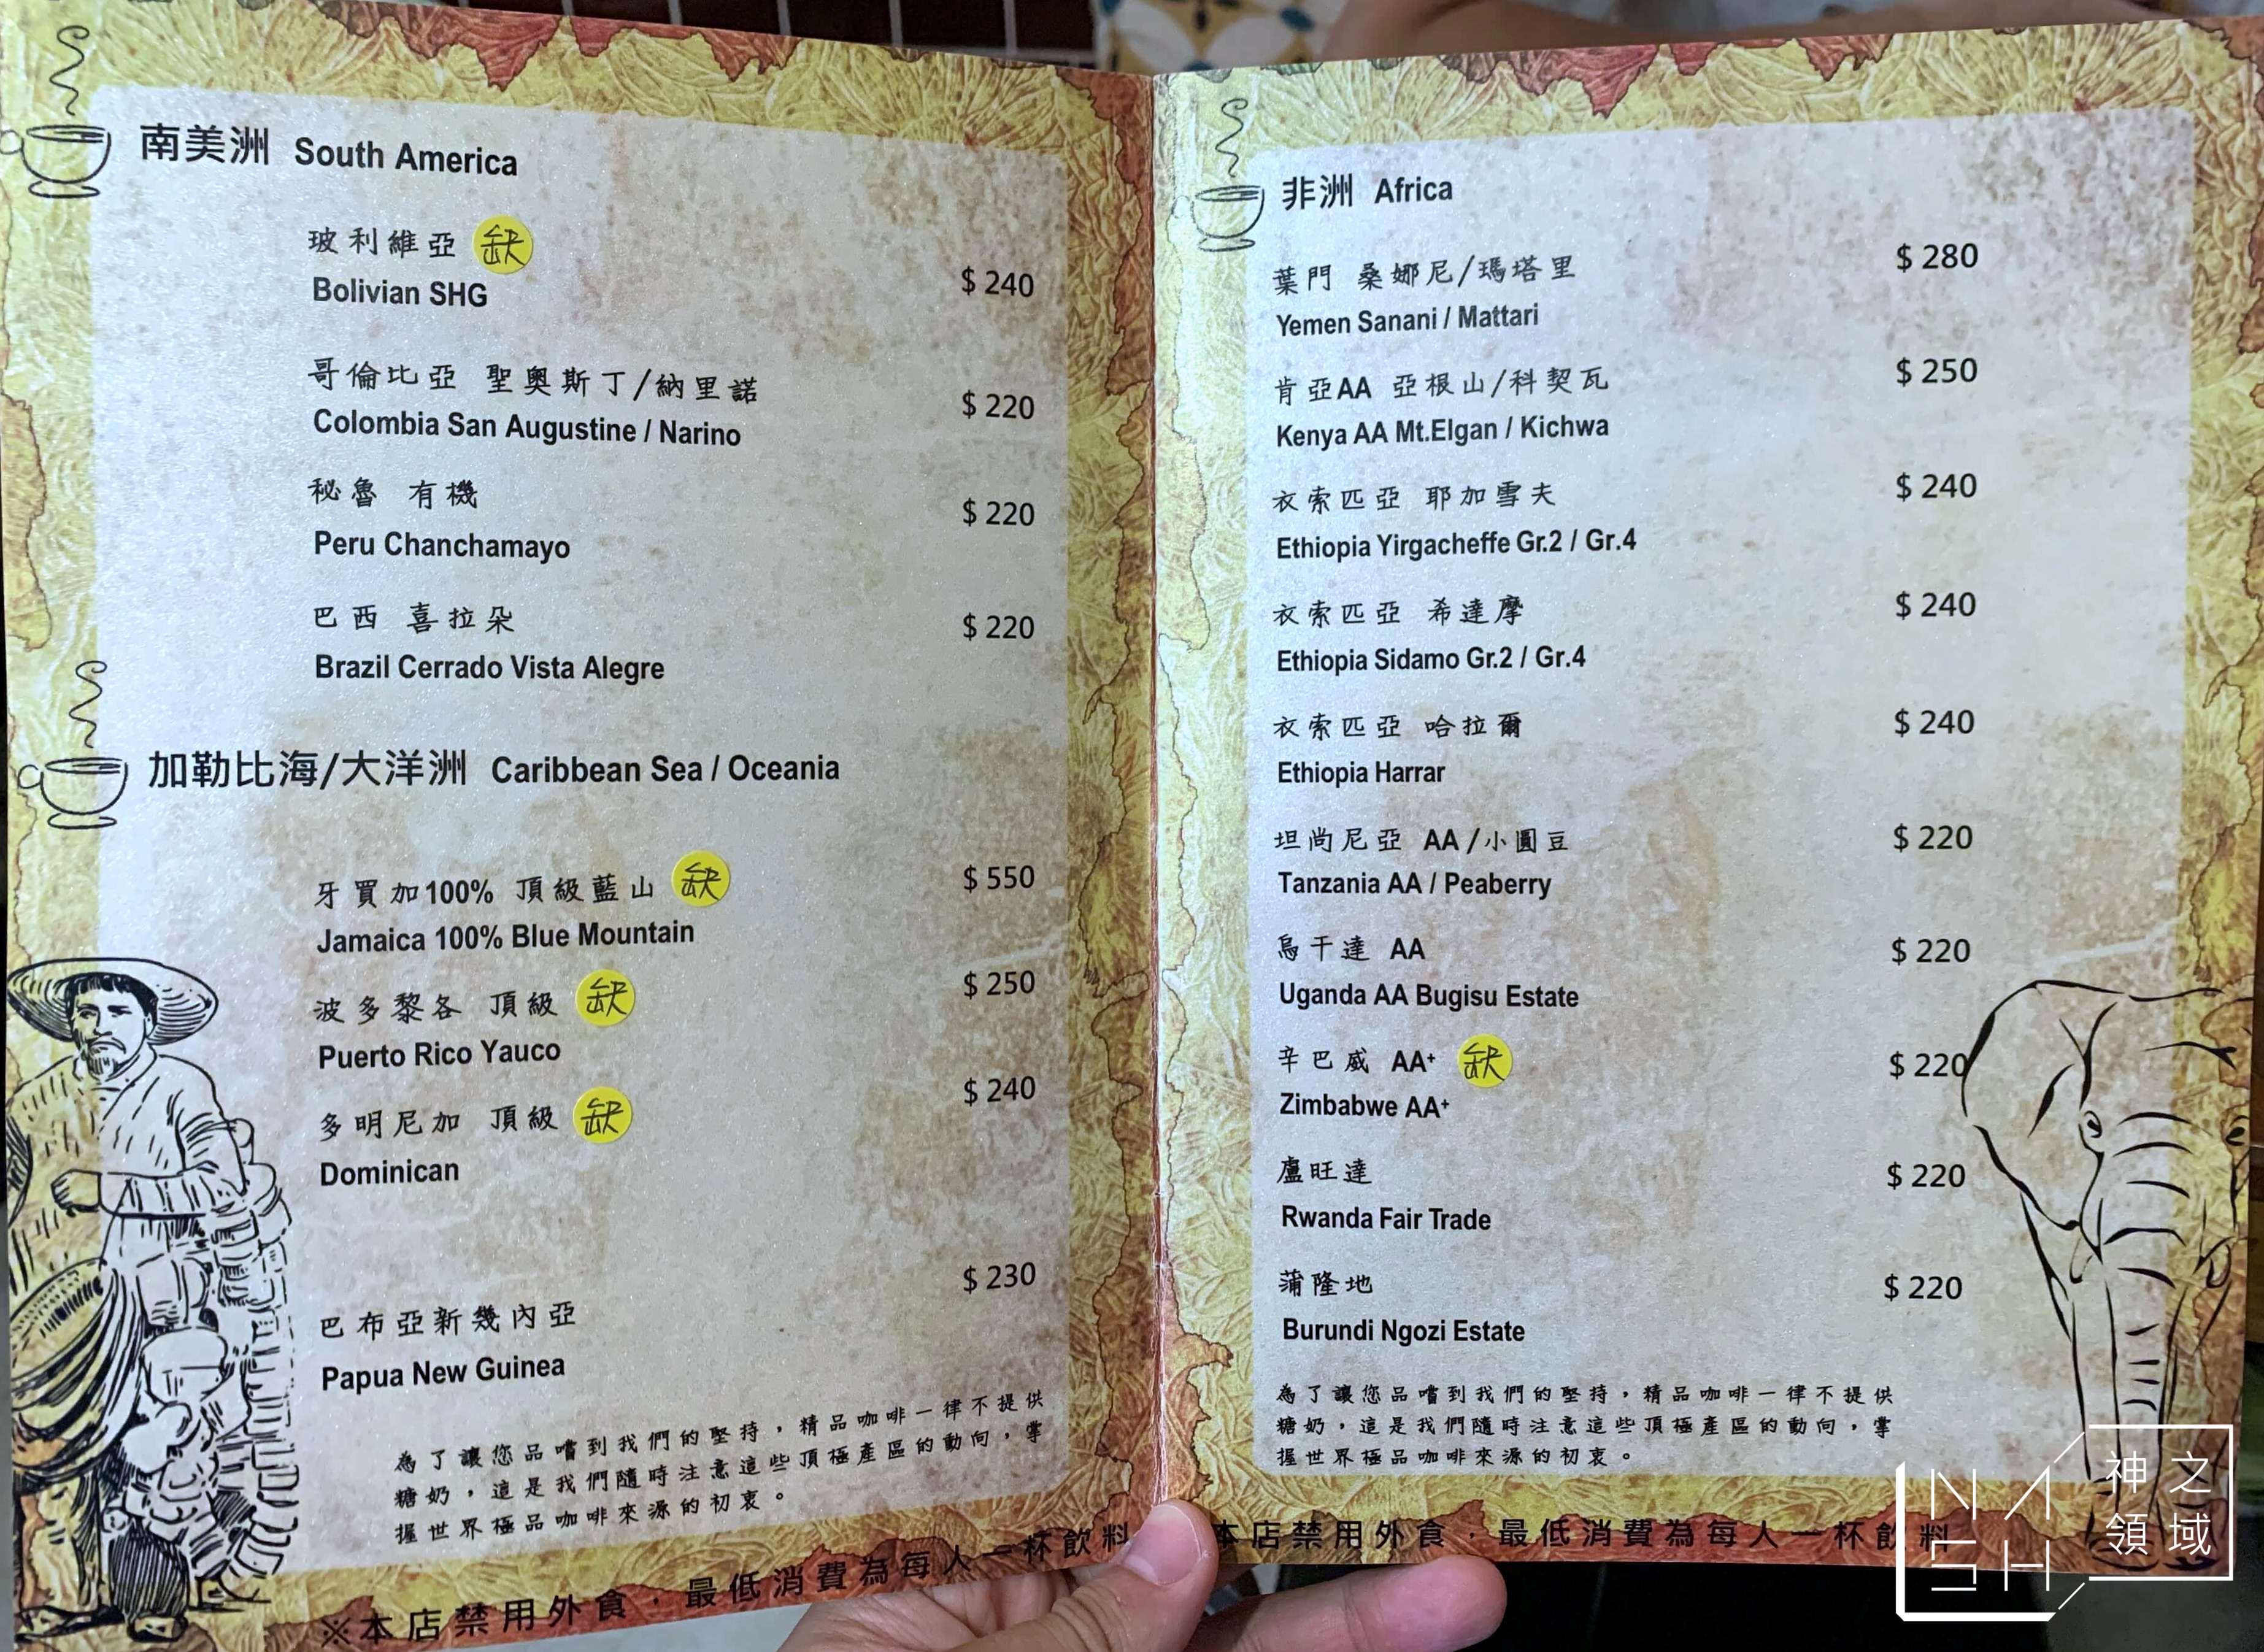 南美洲 South America
玻利維亞 缺
Bolivian SHG $240
哥倫比亞 聖奧斯丁/納里諾
Colombia San Augustine / Narino $220
秘魯 有機
Peru Chanchamayo $220
巴西 喜拉朵
Brazil Cerrado Vista Alegre $220
加勒比海/大洋洲 Caribbean Sea / Oceania
牙買加100% 頂級藍山 缺 $550
Jamaica 100% Blue Mountain
波多黎各 頂級 缺 $250
Puerto Rico Yauco
多明尼加 頂級 缺 $240
Dominican
巴布亞新幾內亞 $230
Papua New Guinea
為了讓您品嚐到我們的堅持，精品咖啡一律不提供
糖奶，這是我們隨時注意這些頂極產區的動向，掌
握世界極品咖啡來源的初衷。
※本店禁用外食．最低消費為每人一杯飲料
非洲 Africa
葉門 桑娜尼/瑪塔里 $280
Yemen Sanani / Mattari
肯亞AA 亞根山/科契瓦 $250
Kenya AA Mt.Elgan / Kichwa
衣索匹亞 耶加雪夫 $240
Ethiopia Yirgacheffe Gr.2 / Gr.4
衣索匹亞 希達摩 $240
Ethiopia Sidamo Gr.2 / Gr.4
衣索匹亞 哈拉爾 $240
Ethiopia Harrar
坦尚尼亞 AA /小圓豆 $220
Tanzania AA / Peaberry
烏干達 AA $220
Uganda AA Bugisu Estate
辛巴威 AA+ 缺 $220
Zimbabwe AA+
盧旺達 $220
Rwanda Fair Trade
蒲隆地 $220
Burundi Ngozi Estate
為了讓您品嚐到我們的堅持，精品咖啡一律不提供
糖奶，這是我們隨時注意這些頂極產區的動向，掌
握世界極品咖啡來源的初衷。
本店禁用外食．最低消費為每人一杯飲料
NASH
神之
領域